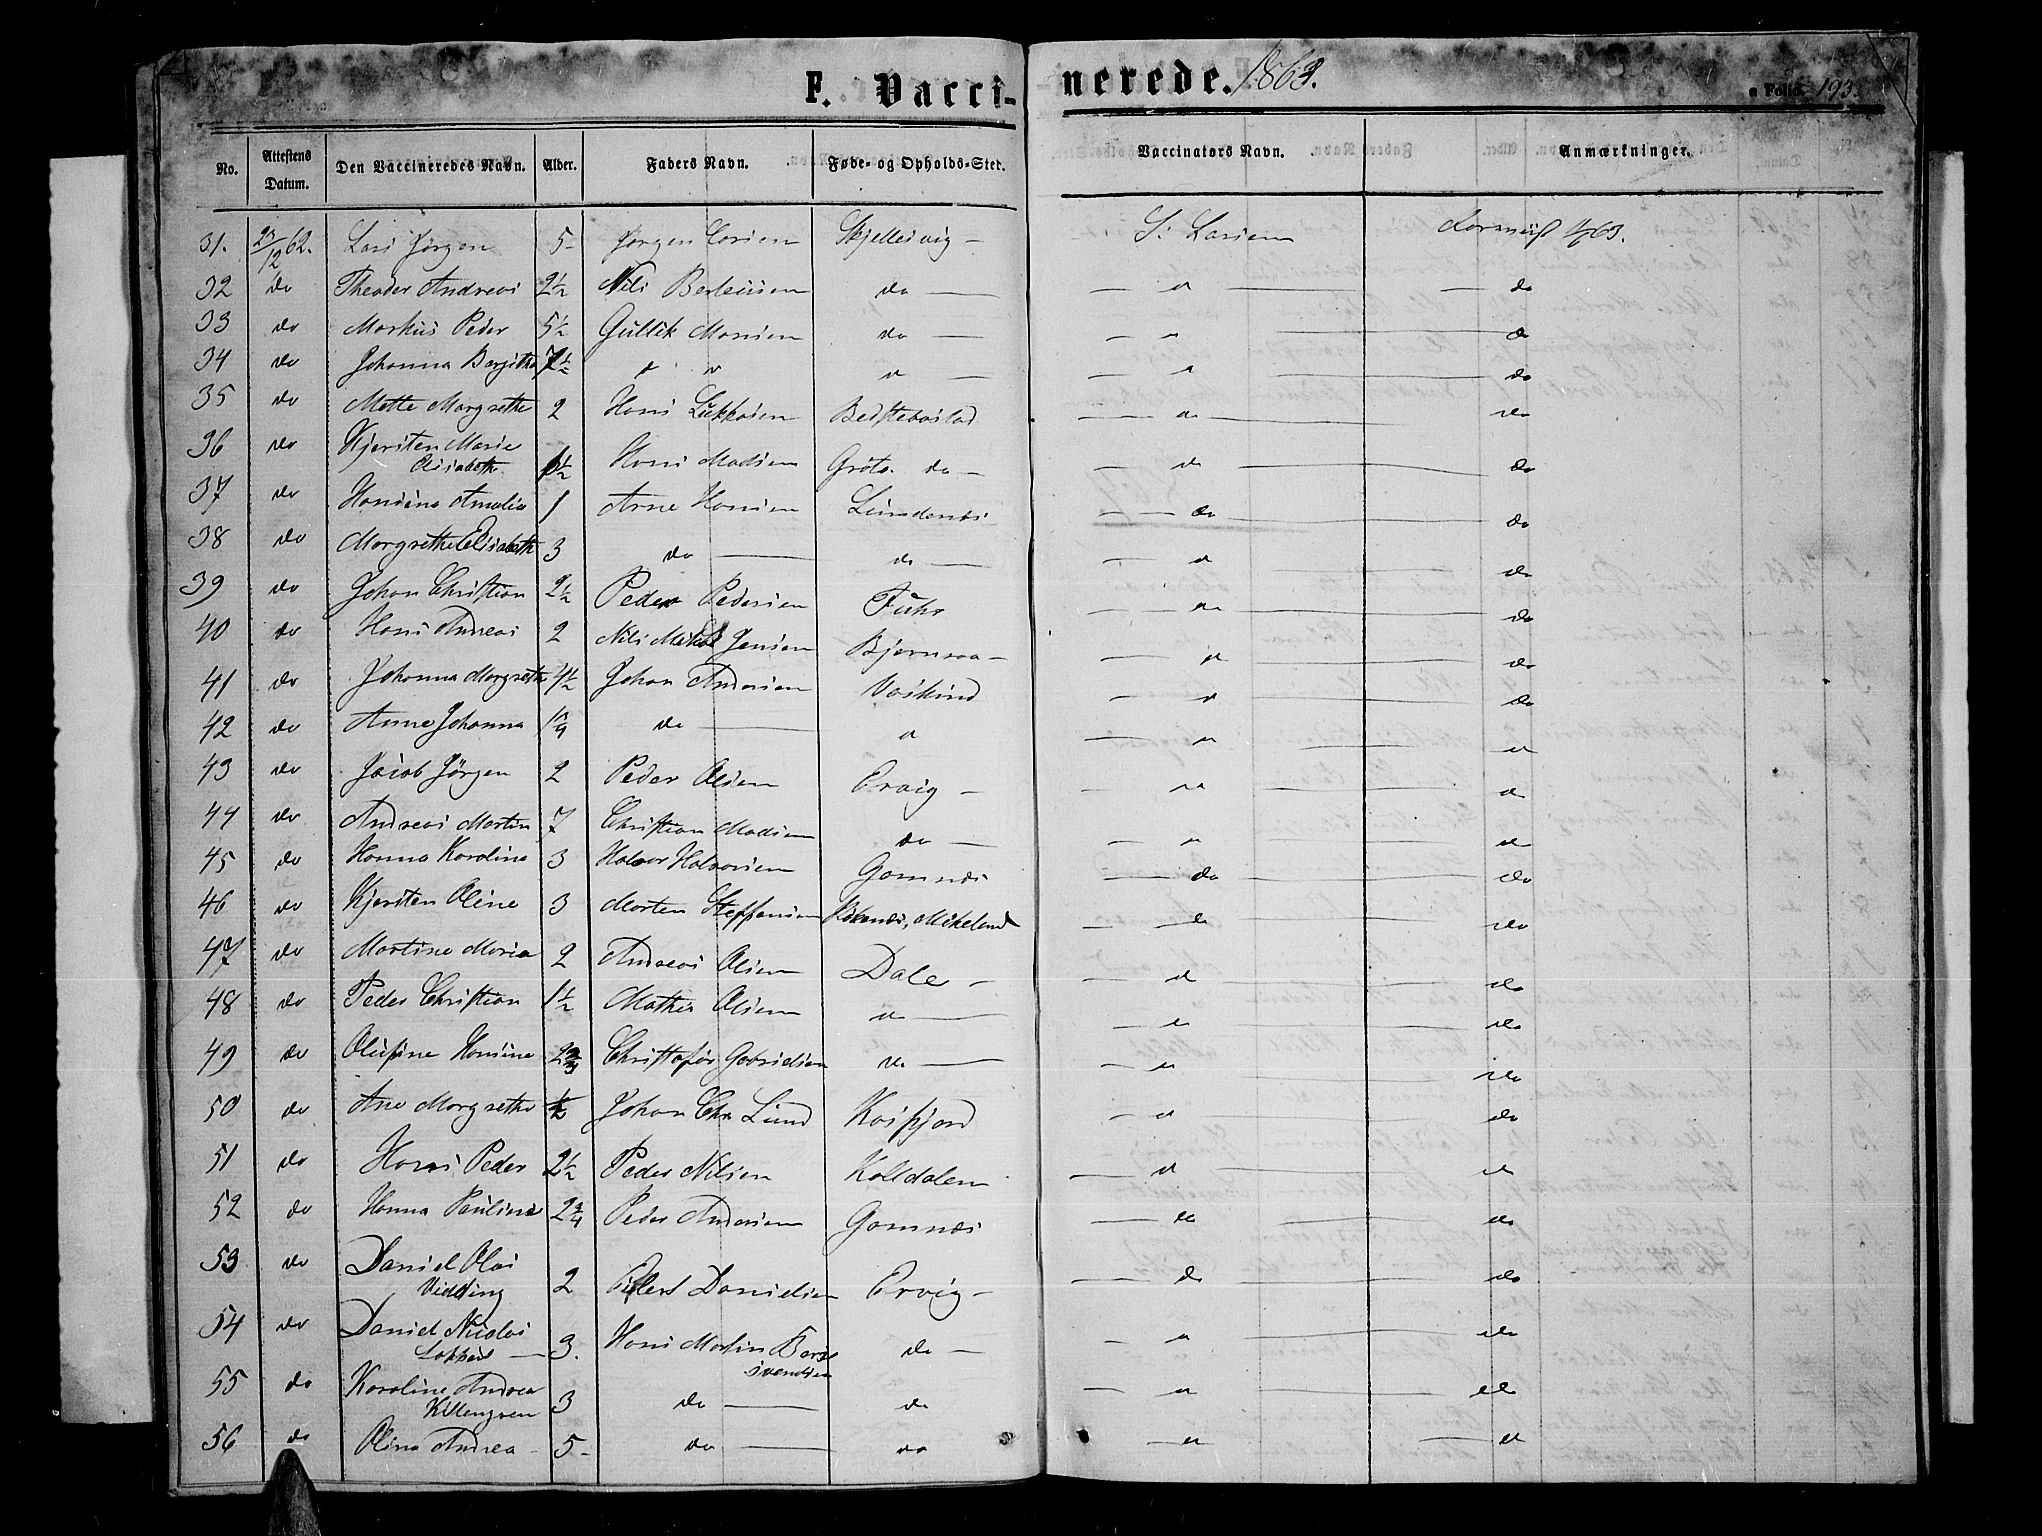 F. Vacci-nerede. 1863.
Folio 193.
No. Attestens Datum. Den Vaccineredes Navn. Alder. Faders Navn. Føde- og Opholds-Sted. Vaccinators Navn. Anmærkninger.
31. 23/12 62. Lars Jørgen 5 - Jørgen Larsen Skjellesvig - S. Larsen
32 do Theodor Andreas 2½ Nils Berteusen do — " — do
33 do Markus Peder 5½ Gullik Monsen do — " — do
34 do Johanna Bergitha 7½ " " " — " — do
35 do Mette Margrethe 2 Hans Lukkasen Bedstebostad — " — do
36 do Kjersten Marie
Elisabeth ½ Hans Madsen Gröts. do — do — do
37 do Hansine Amalia 1 Arne Hansen Lundenes — do — do
38 do Margrethe Elisabeth 3 do — do — " — do
39 do Johan Christian 2½ Peder Pedersen — " — do
40 do Hans Andreas 2 Nils Mikal Jensen Bjørnraa — " — do
41 do Johanna Margrethe 4½ Johan Andersen Vaskind — " — do
42 do Anne Johanna do — " — " — "
43 do Jacob Jørgen 2 Peder Olsen Ervig — " — "
44 do Andreas Martin 7 Christian Madsen do — " — do
45 do Hanna Karolina 3 Halvor Halvorsen Gamnæs — do — do
46 do Kjersten Oline 3 Morten Steffensen — do — do
47 do Martine Maria 2 Andreas Olsen Dale — " — do
48 do Peder Christian 1½ Mathis Olsen " — do
49 do Olufine Hansine 2¾ Christofer Gabrielsen do — " — do
50 do Ane Margrethe ½ Johan Chr Lund Kasfjord — " — do
51 do Hans Peder 2½ Peder Nilsen Kolldalen — " — do
52 do Hanna Pauline 2¾ Peder Andersen Gamnæs — do — do
53 do Daniel Olai
Vidding 2 Eilert Danielsen Ervig — do — do
54 do Daniel Nicolai
3. Hans Martin Bern
svendsen do — " — do
55 do Karoline Andrea
3 do — do — " — do
56 do Olina Andrea 5 - do — do — " — "